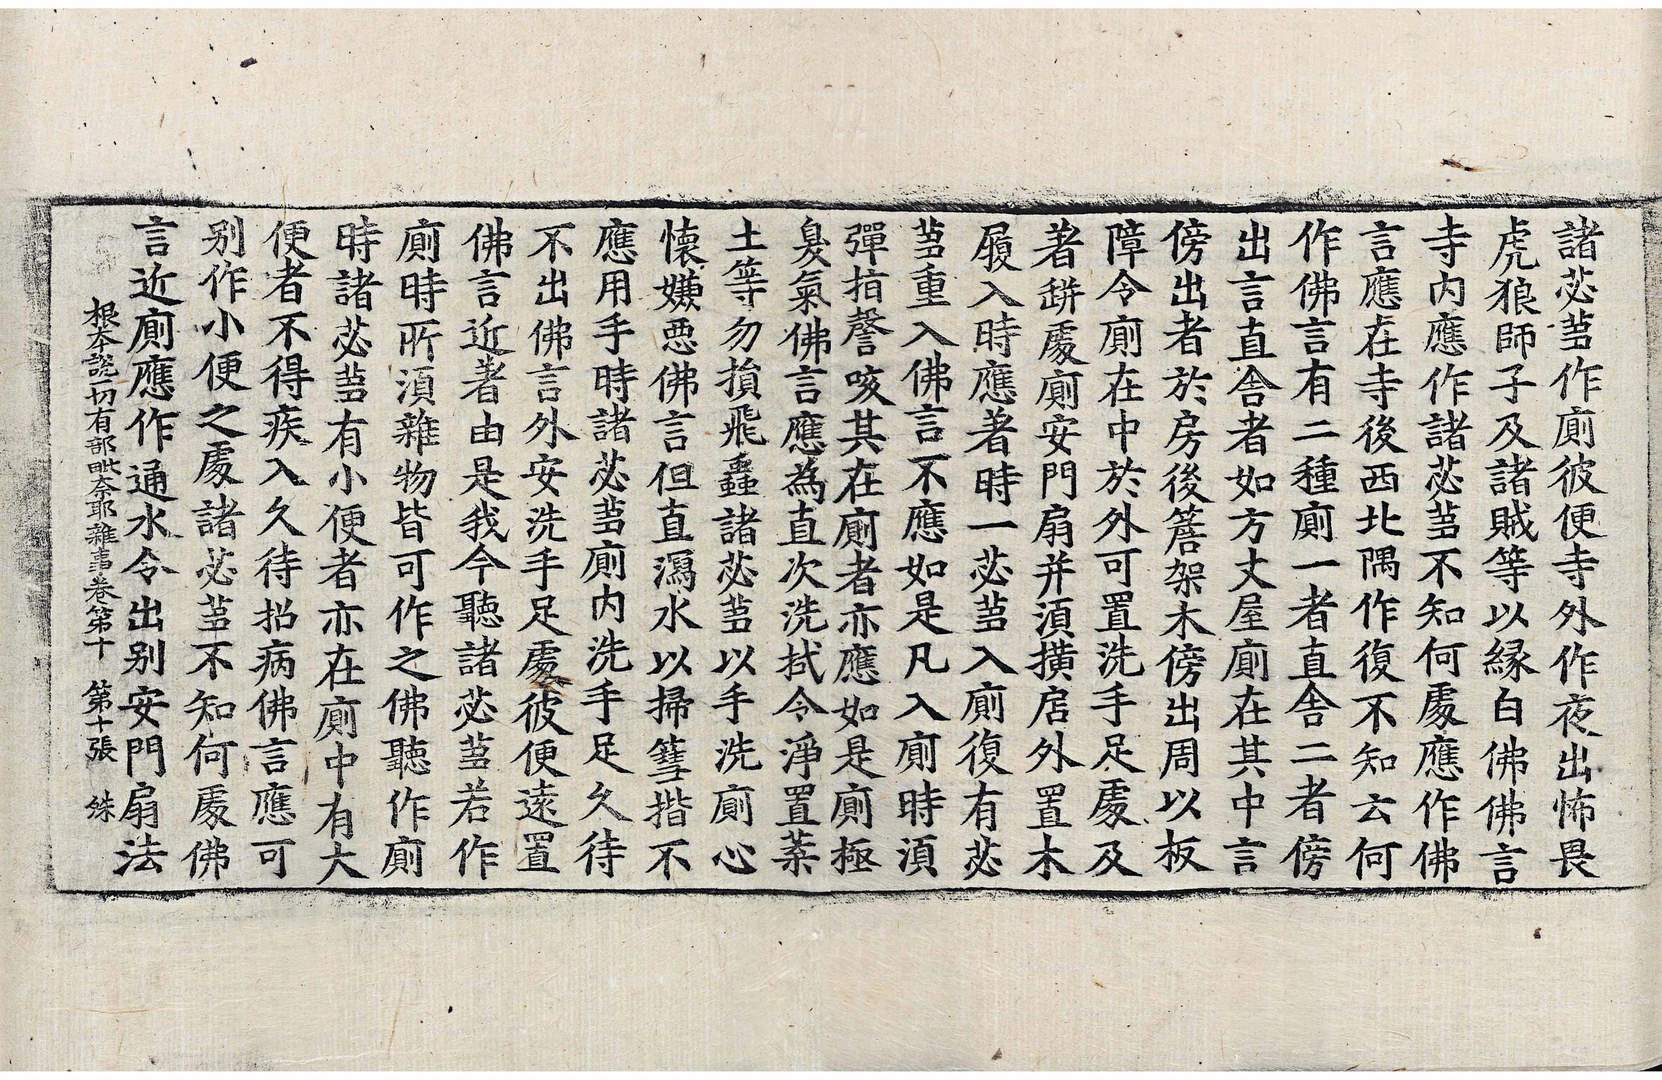 諸苾蒭作廁彼便寺外作夜出怖畏
虎狼師子及諸賊等以縁白佛佛言
寺内應作諸苾蒭不知何處應作佛
言應在寺後西北隅作復不知云何
作佛言有二種廁一者直舎二者傍
出言直舎者如方丈屋廁在其中言
傍出者於房後簷架木傍出周以板
障令廁在中於外可置洗手足處及
著缾處廁安門扇并湏撗扂外置木
履入時應著時一苾蒭入廁復有苾
蒭重入佛言不應如是凡入廁時湏
彈指謦咳其在廁者亦應如是廁極
臭氣佛言應為直次洗拭令淨置葇
土等勿損飛蟲諸苾蒭以手洗廁心
懐嫌惡佛言但直瀉水以掃篲揩不
應用手時諸苾蒭廁内洗手足久待
不出佛言外安洗手足處彼便遠置
佛言近著由是我今聽諸苾蒭若作
廁時所湏雜物皆可作之佛聽作廁
時諸苾蒭有小便者亦在廁中有大
便者不得疾入久待招病佛言應可
別作小便之處諸苾蒭不知何處佛
言近廁應作通水令出別安門扇法
根本說一切有部毗奈耶雜事卷第十 第十張 銖